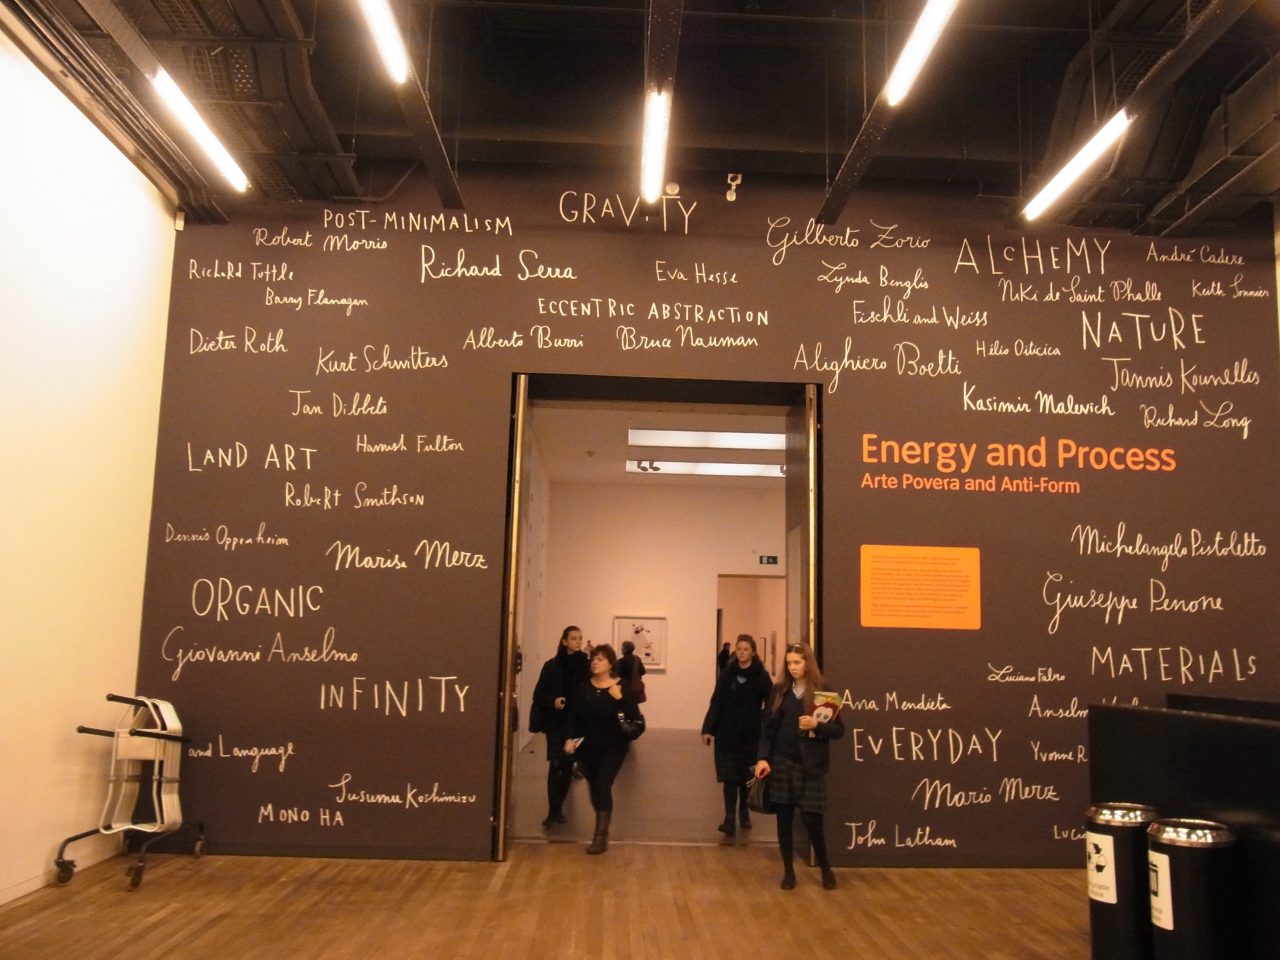 GRAVITY
POST-MINIMALISM
Robert Morris
Gilberto Zorio
ALCHEMY
André Cadere
Richard Tuttle
Richard Serra
Eva Hesse
Lynda Benglis
Niki de Saint Phalle
Keith Sonnier
Barry Flanagan
ECCENTRIC ABSTRACTION
Fischli and Weiss
NATURE
Dieter Roth
Kurt Schwitters
Alberto Burri
Bruce Nauman
Alighiero Boetti
Hélio Oiticica
Jannis Kounellis
Jan Dibbets
Kasimir Malevich
Richard Long
LAND ART
Hamish Fulton
Energy and Process
Arte Povera and Anti-Form
Robert Smithson
Dennis Oppenheim
Marisa Merz
Michelangelo Pistoletto
ORGANIC
Giuseppe Penone
Giovanni Anselmo
MATERIALS
Luciano Fabro
INFINITY
Ana Mendieta
Anselm
and Language
EVERYDAY
Yvonne R
Susumu Koshimizu
Mario Merz
MONO HA
John Latham
Luci